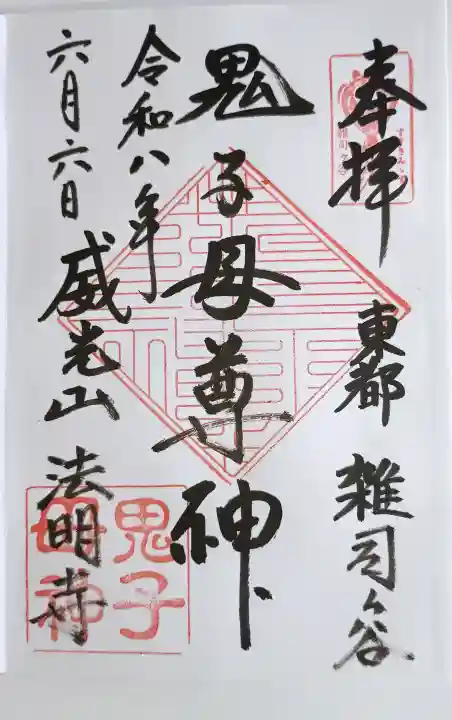 奉拝
東都 雑司ヶ谷
鬼子母尊神
令和八年
六月六日
威光山 法明寺
鬼子
母神